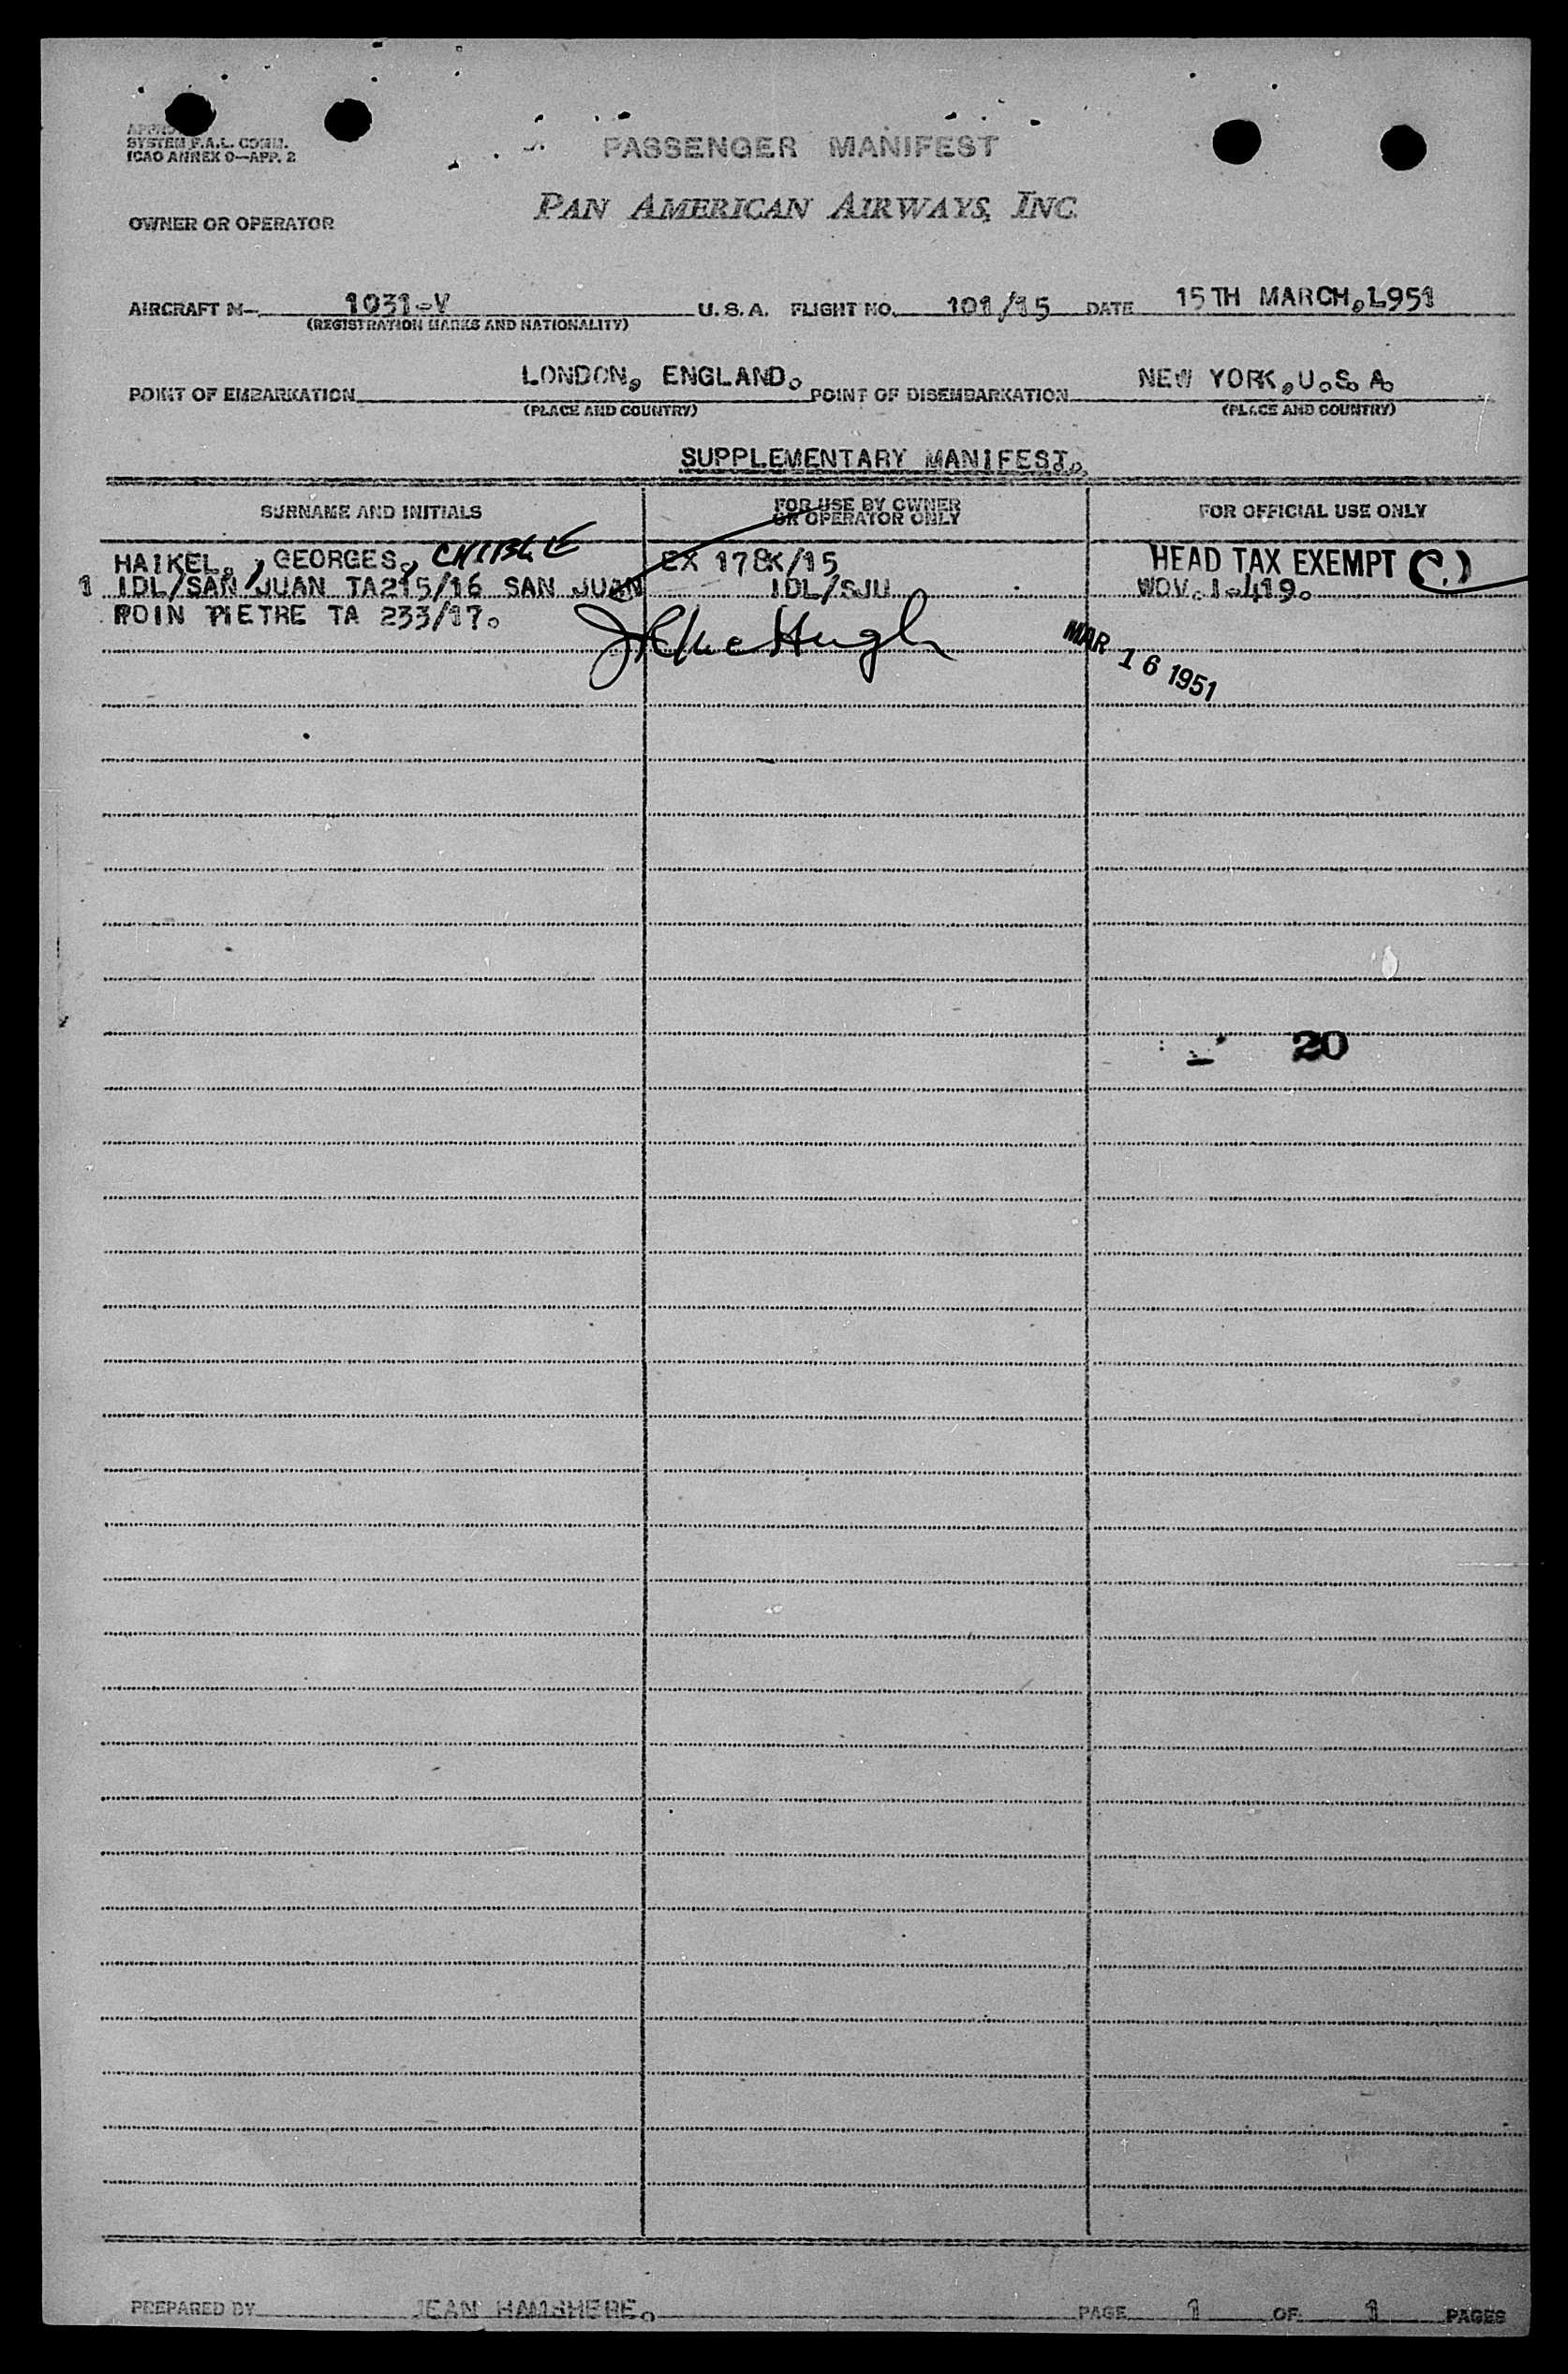 SYSTEM F.A.L. COMM.
ICAO ANNEX 9—APP. 2
PASSENGER MANIFEST
PAN AMERICAN AIRWAYS, INC.
OWNER OR OPERATOR
AIRCRAFT N- 1031-V U.S.A. FLIGHT NO. 101/15 DATE 15TH MARCH,1951
(REGISTRATION MARKS AND NATIONALITY)
POINT OF EMBARKATION LONDON, ENGLAND. POINT OF DISEMBARKATION NEW YORK,U.S.A.
(PLACE AND COUNTRY) (PLACE AND COUNTRY)
SUPPLEMENTARY MANIFEST.
SURNAME AND INITIALS FOR USE BY OWNER OR OPERATOR ONLY FOR OFFICIAL USE ONLY
HAIKEL, GEORGES, CHIBLE EX 178K/15 HEAD TAX EXEMPT
1 IDL/SAN JUAN TA215/16 SAN JUAN IDL/SJU WOV.I-419.
POIN PIETRE TA 233/17.
MAR 16 1951
20
PREPARED BY JEAN HAMSHERE. PAGE 1 OF 1 PAGES